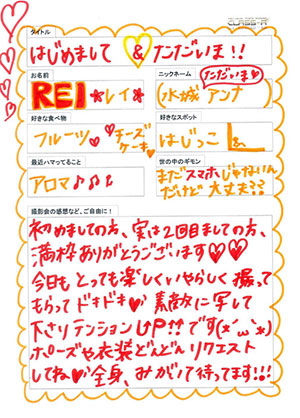 CLASS-A
タイトル
はじめまして & ただいま!!
お名前
ニックネーム
REI★レイ★
ただいま♥
(水城アンナ)
好きな食べ物
好きなスポット
フルーツ♥チーズケーキ♥
はじっこ
最近ハマってること
世の中のギモン
アロマ♪♪♪
まだスマホじゃないんだけど大丈夫??
撮影会の感想など、ご自由に!
初めましての方、実は2回目ましての方、
満枠ありがとうございます♥♥
今日もとっても楽しくいやらしく撮って
もらってドキドキ♥素敵に写して
下さりテンションUP!!です(*´ω`*)
ポーズや衣装どんどんリクエスト
してね♥全身、みがいて待ってます!!!